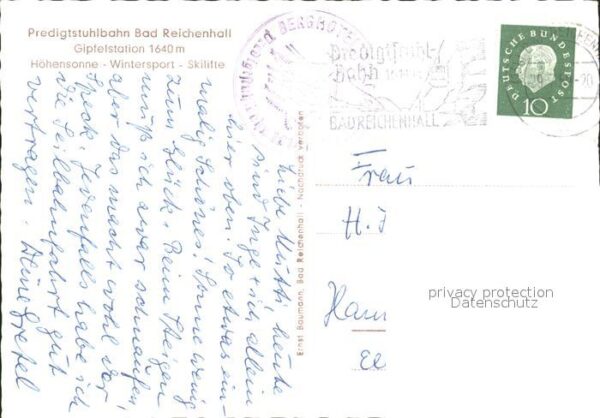 Predigtstuhlbahn Bad Reichenhall
Gipfelstation 1640 m
Höhensonne - Wintersport - Skilifte
BERGHOTEL
Predigtstuhl-
bahn
BAD REICHENHALL
DEUTSCHE BUNDESPOST
10
-20
Liebe Mutti! heute
sind Inge + ich allein
hier oben. So etwas ein-
malig Schönes! Sonne wenig
zum Glück. Beim Steigen
muß ich zwar schnaufen
aber das macht wohl der
Speck. Jedenfalls habe ich
die Seilbahnfahrt gut
vertragen. Deine Gretel
Ernst Baumann, Bad Reichenhall - Nachdruck verboten
Frau
H. J
Ham
ee
privacy protection
Datenschutz